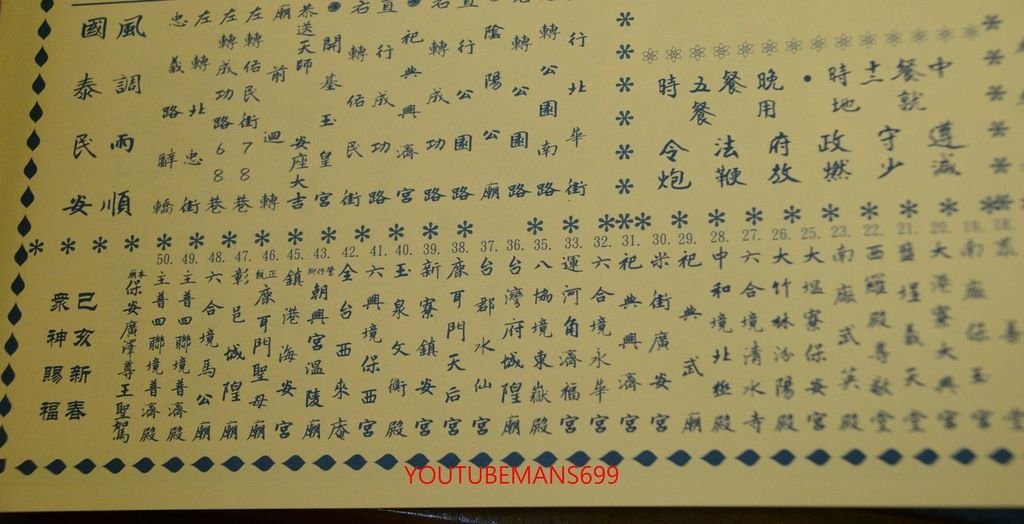 中餐十二時•晚餐五時
就地用餐
遵守政府法令
減少燃放鞭炮
行北華街
轉公園南路
右轉公園路
陰陽公廟
直行公園路
右轉成功路
祀典興濟宮
直行成功路
右轉佰民街
開基玉皇宮
恭送天師安座大吉
廟前迴轉
左轉佰民街78巷
左轉成功路68巷
左轉北忠街
忠義路辭轎
風調雨順
國泰民安
19.南廠保玉宮
20.大港寮大興宮
21.鹽埕義天堂
22.西羅殿尊敬堂
23.南廠武英殿
25.大埕寮保安宮
26.大竹林汾陽殿
27.六合境清水寺
28.中和境北極殿
29.祀典武廟
30.米街廣安宮
31.祀典興濟宮
32.六合境永華宮
33.運河角濟福宮
35.八協境東嶽殿
36.台灣府城隍廟
37.台郡水仙宮
38.康耳門天后宮
39.新寮鎮安宮
40.玉泉文衡殿
41.六興境保西宮
42.全台西來庵
43.朝興宮溫陵廟
45.鎮港海安宮
46.正統康耳門聖母廟
47.彰邑城隍廟
48.六合境馬公廟
49.主普四聯境普濟殿
50.主普四聯境普濟殿
本廟保安廣澤尊王聖駕
己亥新春
眾神賜福
YOUTUBEMANS699